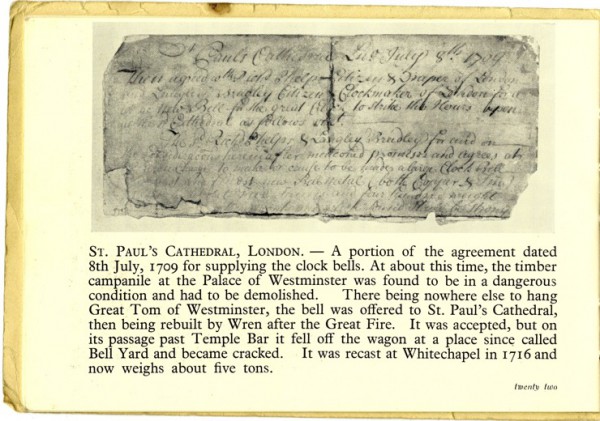 St Pauls Cathedral July 8th 1709
Then agreed with Richd Phelps Citizen & Draper of London
and Langley Bradley Citizen & Clockmaker of London for a
Bell for the great Clock to strike the Hours upon
Cathedral as follows
The sd Richd Phelps & Langley Bradley for and
promise and agree
to make or cause to be made a large Clock Bell
new Bell metal both Copper & Tinn
ST. PAUL'S CATHEDRAL, LONDON. — A portion of the agreement dated
8th July, 1709 for supplying the clock bells. At about this time, the timber
campanile at the Palace of Westminster was found to be in a dangerous
condition and had to be demolished. There being nowhere else to hang
Great Tom of Westminster, the bell was offered to St. Paul's Cathedral,
then being rebuilt by Wren after the Great Fire. It was accepted, but on
its passage past Temple Bar it fell off the wagon at a place since called
Bell Yard and became cracked. It was recast at Whitechapel in 1716 and
now weighs about five tons.
twenty two